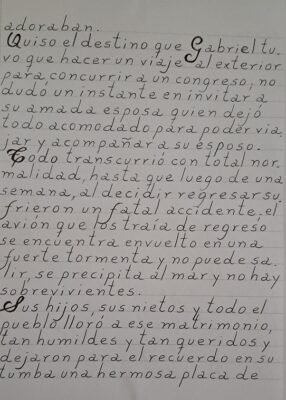 adoraban.
Quiso el destino que Gabriel tu.
vo que hacer un viaje al exterior
para concurrir a un congreso, no
dudó un instante en invitar a
su amada esposa quien dejó
todo acomodado para poder via.
jar y acompañar a su esposo.
Todo transcurrió con total nor.
malidad, hasta que luego de una
semana, al decidir regresar su.
frieron un fatal accidente, el
avión que los traía de regreso
se encuentra envuelto en una
fuerte tormenta y no puede sa.
lir, se precipita al mar y no hay
sobrevivientes.
Sus hijos, sus nietos y todo el
pueblo lloró a ese matrimonio,
tan humildes y tan queridos y
dejaron para el recuerdo en su
tumba una hermosa placa de